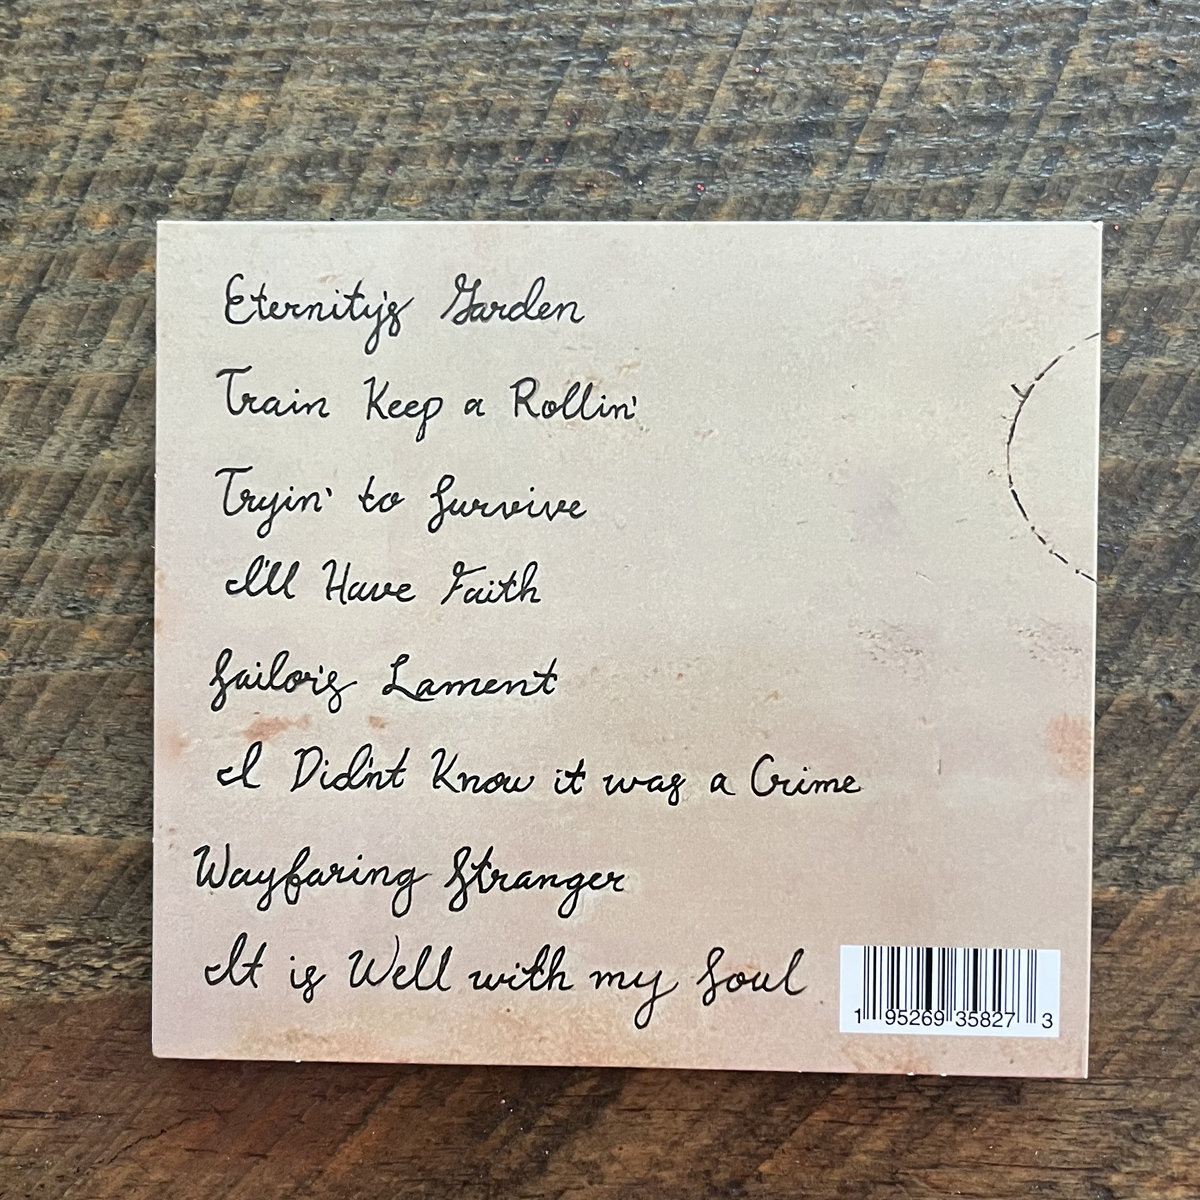 Eternity's Garden
Train Keep a Rollin'
Tryin' to Survive
I'll Have Faith
Sailor's Lament
I Didn't Know it was a Crime
Wayfaring Stranger
It is Well with my Soul
1 95269 35827 3